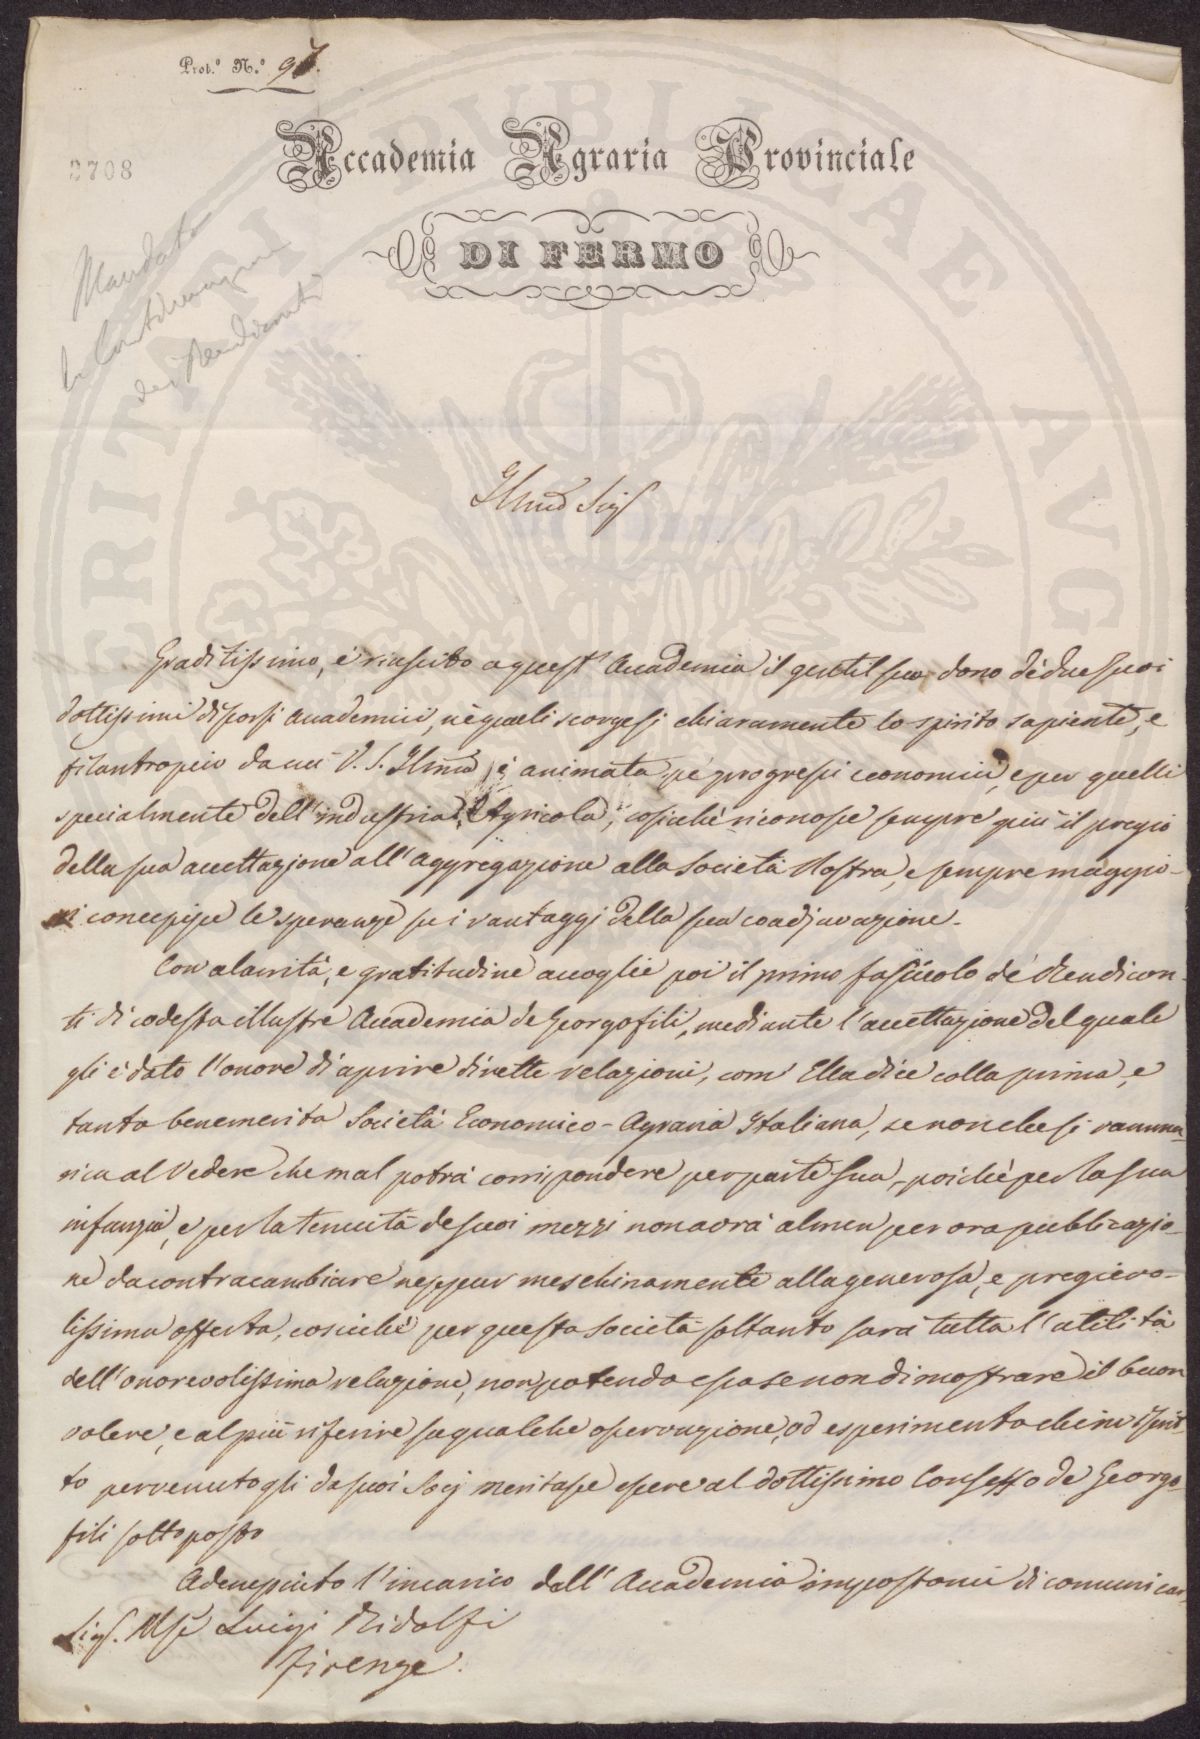 Prot.° N.° 97.
2708
Accademia Agraria Provinciale
DI FERMO
Mandato
la Continuazione
dei Rendiconti
Illmo Sigr
Graditissimo, è riuscito a quest' Accademia il gentil suo dono de' due suoi
dottissimi discorsi accademici, ne' quali scorgesi chiaramente lo spirito sapiente, e
filantropico da cui V. S. Illma è animata pe' progressi economici, e per quelli
specialmente dell' industria Agricola, cosicché riconosce sempre più il pregio
della sua accettazione all' aggregazione alla Società Nostra, e sempre maggio-
ri concepisce le speranze su i vantaggj della sua coadjuvazione.
Con alacrità, e gratitudine accoglie poi il primo fascicolo de' Rendicon-
ti di codesta illustre Accademia de Georgofili, mediante l' accettazione del quale
gli è dato l' onore di aprire dirette relazioni, com' Ella dice colla prima, e
tanto benemerita Società Economico-Agraria Italiana, se non che si ramma-
rica al vedere che mal potrà corrispondere per parte sua, poiché per la sua
infanzia, e per la tenuità de suoi mezzi non avrà almen per ora pubblicazio-
ne da contracambiare neppur meschinamente alla generosa, e pregievo-
lissima offerta, cosicché per questa Società soltanto sarà tutta l' utilità
dell' onorevolissima relazione, non potendo essa se non dimostrare il buon
volere, e al più riferire su qualche osservazione, od esperimento che in iscrit-
to pervenutogli da suoi Socj meritasse essere al dottissimo Consesso de Georgo-
fili sottoposto
Adempiuto l' incarico dall' Accademia impostomi di comunicar
Sigr. Mse Luigi Ridolfi
Firenze.